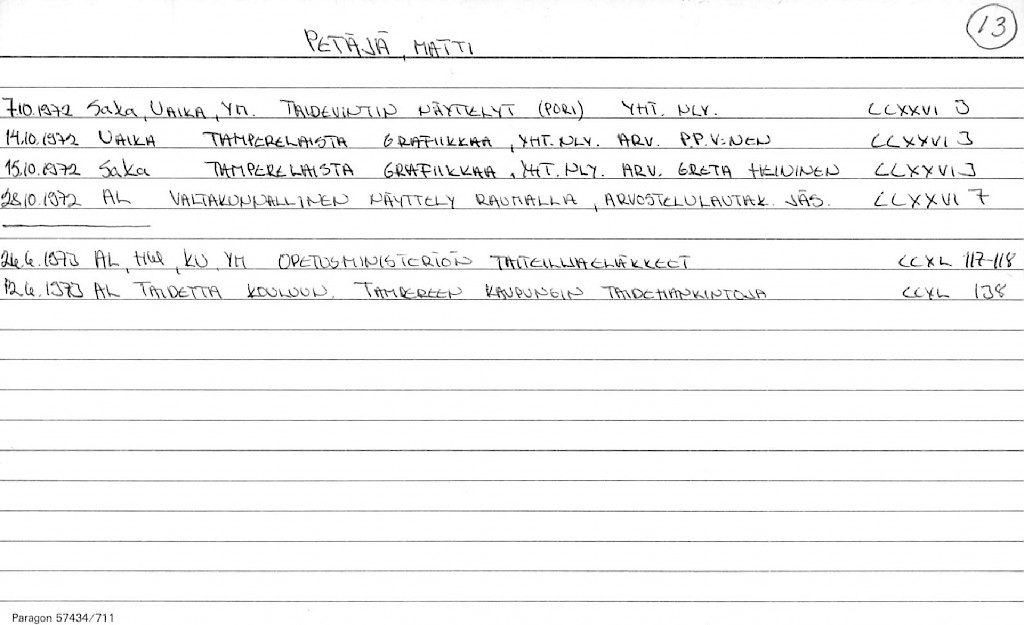 13
PETÄJÄ, MATTI
7.10.1972 SaKa, UAIKA, YM. TAIDEVINTIN NÄYTTELYT (PORI) YHT. NLY. CCXXVI 3
14.10.1972 UAIKA TAMPERELAISTA GRAFIIKKAA, YHT. NLY. ARV. P.P. V:NEN CCXXVI 3
15.10.1972 SaKa TAMPERELAISTA GRAFIIKKAA, YHT. NLY. ARV. GRETA HEININEN CCXXVI 3
28.10.1972 AL VALTAKUNNALLINEN NÄYTTELY RAUMALLA, ARVOSTELULAUTAK. JÄS. CCXXVI 7
.6.1973 AL, KU, YM OPETUSMINISTERIÖN TAITEILIJAELÄKKEET CCXL 117-118
12.6.1973 AL TAIDETTA KOULUUN. TAMPEREEN KAUPUNGIN TAIDEHANKINTOJA CCXL 138
Paragon 57434/711